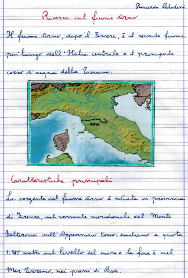 Ricerca sul fiume Arno
Il fiume Arno, dopo il Tevere, è il secondo fiume
più lungo dell'Italia centrale e il principale
corso d'acqua della Toscana.
Arno
Caratteristiche principali
La sorgente del fiume Arno è situata in provincia
di Firenze, sul versante meridionale del Monte
Falterona nell'Appennino tosco emiliano a quota
metri sul livello del mare e la foce è nel
Mar Tirreno, nei pressi di Pisa.